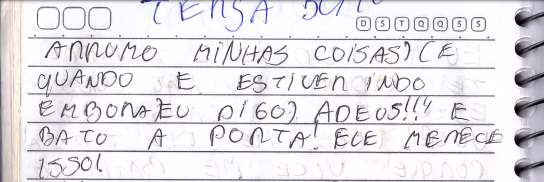 D S T Q Q S S
ARRUMO MINHAS COISAS) (E
QUANDO E ESTIVER INDO
EMBORA) EU DIGO) ADEUS!!! E
BATO A PORTA! ELE MERECE
ISSO!